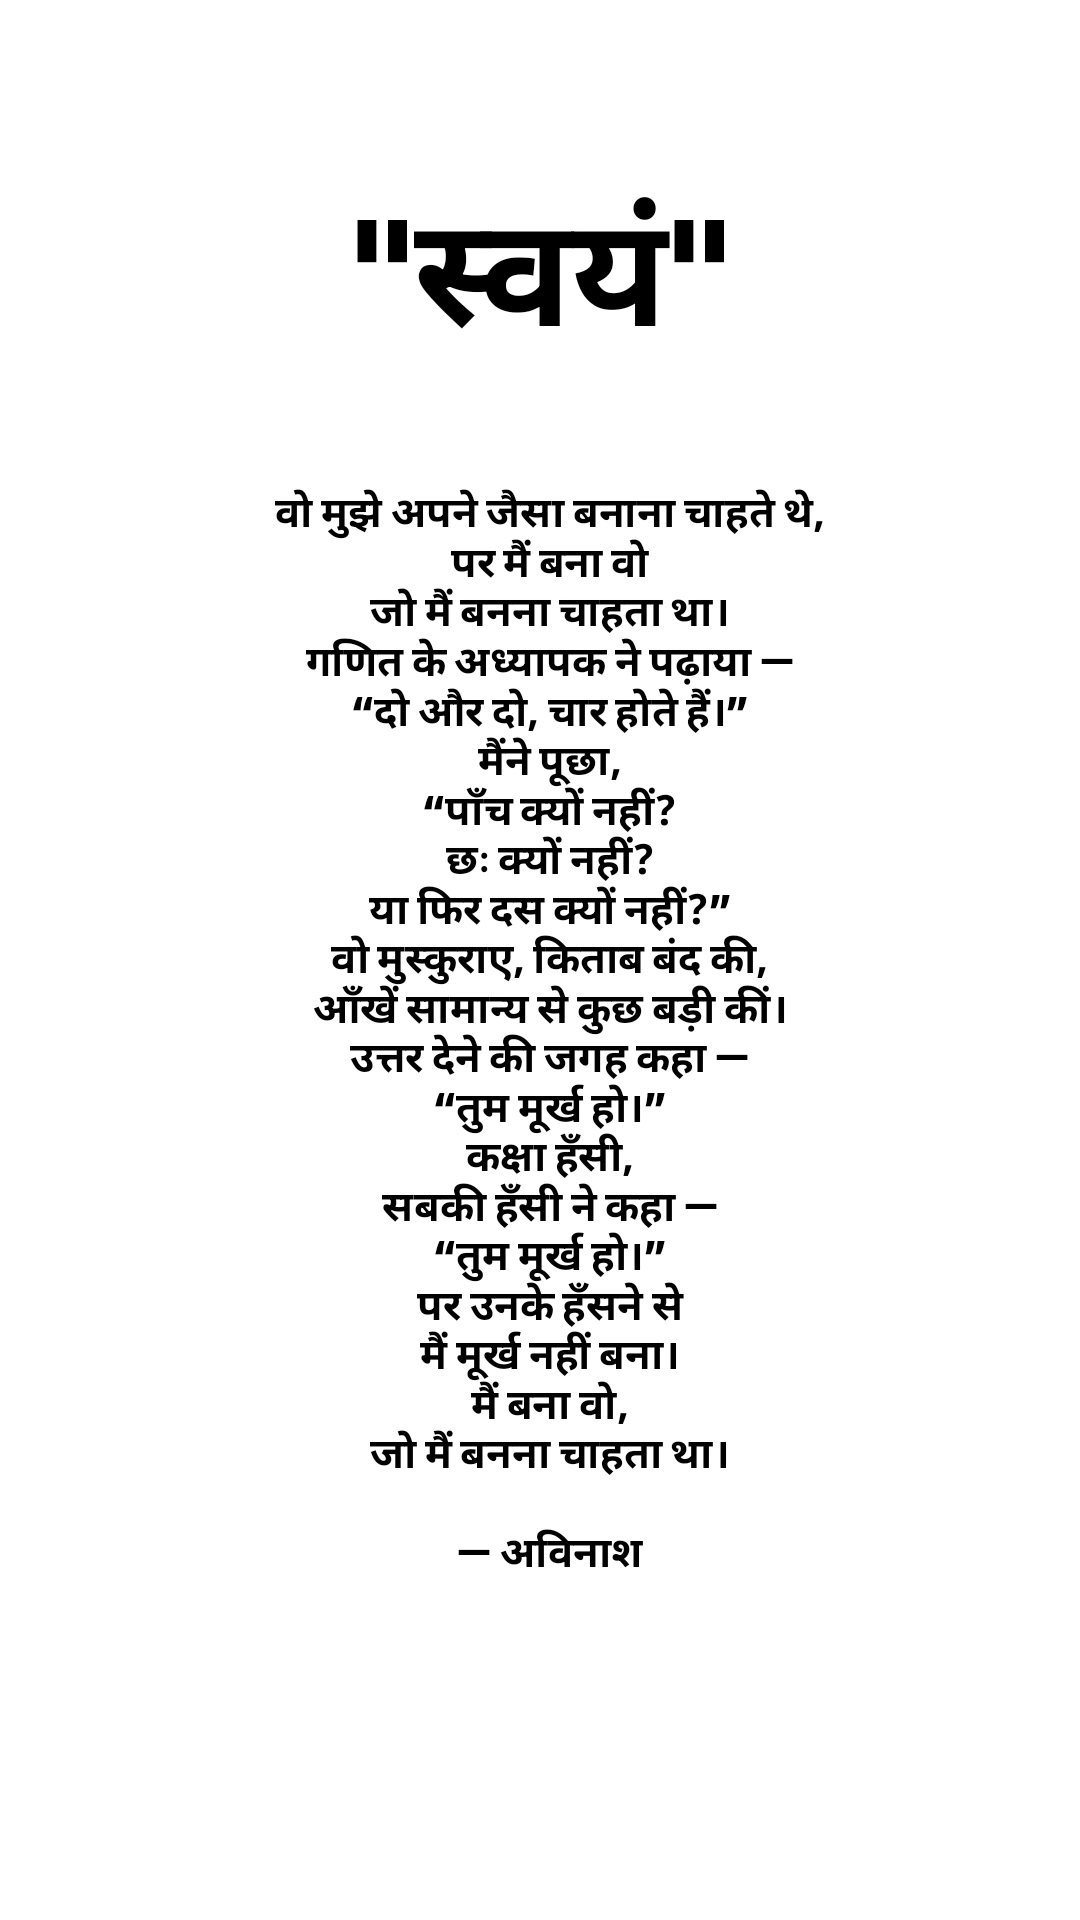 "स्वयं"
वो मुझे अपने जैसा बनाना चाहते थे,
पर मैं बना वो
जो मैं बनना चाहता था।
गणित के अध्यापक ने पढ़ाया —
“दो और दो, चार होते हैं।”
मैंने पूछा,
“पाँच क्यों नहीं?
छः क्यों नहीं?
या फिर दस क्यों नहीं?”
वो मुस्कुराए, किताब बंद की,
आँखें सामान्य से कुछ बड़ी कीं।
उत्तर देने की जगह कहा —
“तुम मूर्ख हो।”
कक्षा हँसी,
सबकी हँसी ने कहा —
“तुम मूर्ख हो।”
पर उनके हँसने से
मैं मूर्ख नहीं बना।
मैं बना वो,
जो मैं बनना चाहता था।
— अविनाश